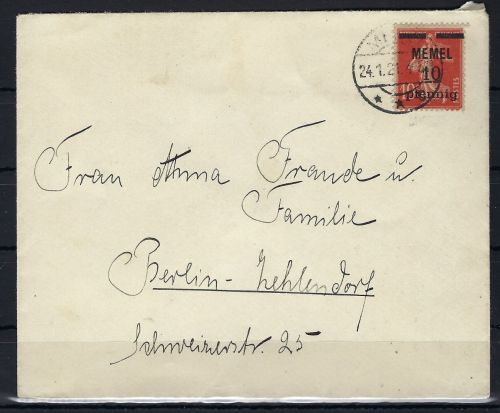 24.1.21.
MEMEL
10
pfennig
Frau Anna Fraude u.
Familie
Berlin-Zehlendorf
Schweizerstr. 25